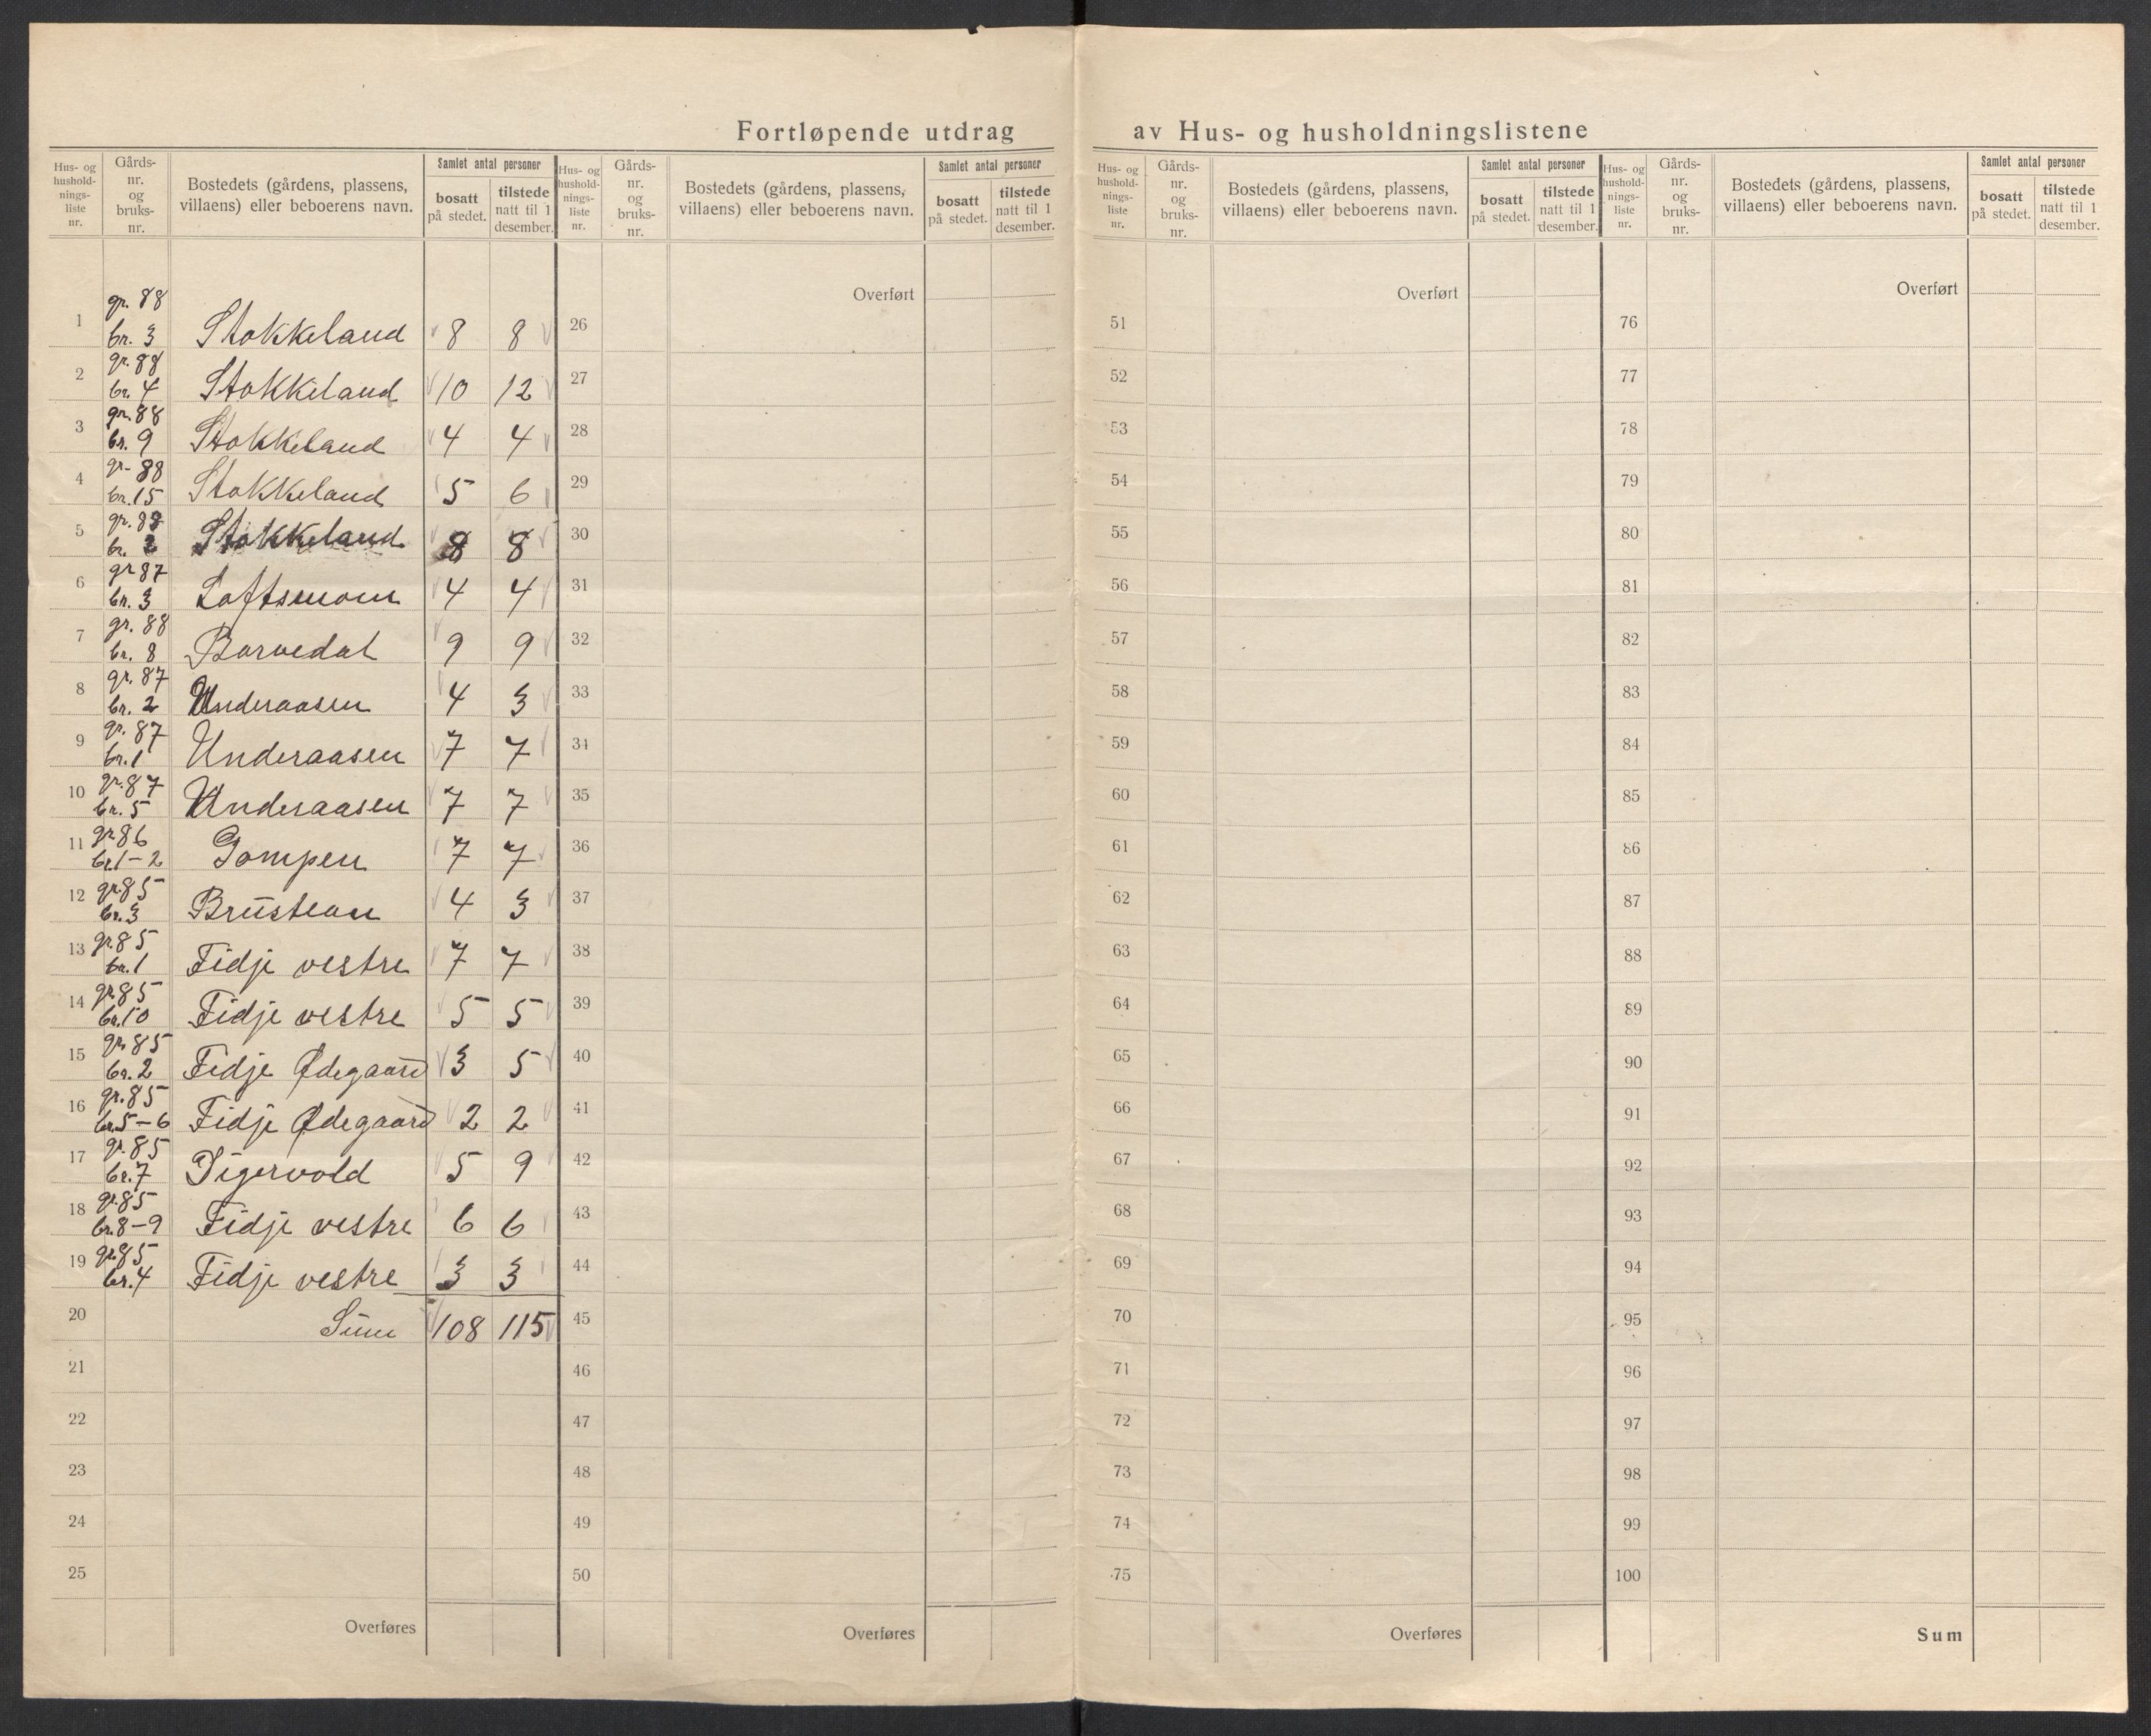 Fortløpende utdrag av Hus- og husholdningslistene
Hus- og hushold- nings- liste nr. | Gårds- nr. og bruks- nr. | Bostedets (gårdens, plassens, villaens) eller beboerens navn. | Samlet antal personer | bosatt på stedet. | tilstede natt til 1 desember.
Hus- og hushold- nings- liste nr. | Gårds- nr. og bruks- nr. | Bostedets (gårdens, plassens, villaens) eller beboerens navn. | Samlet antal personer | bosatt på stedet. | tilstede natt til 1 desember.
Hus- og hushold- nings- liste nr. | Gårds- nr. og bruks- nr. | Bostedets (gårdens, plassens, villaens) eller beboerens navn. | Samlet antal personer | bosatt på stedet. | tilstede natt til 1 desember.
Hus- og hushold- nings- liste nr. | Gårds- nr. og bruks- nr. | Bostedets (gårdens, plassens, villaens) eller beboerens navn. | Samlet antal personer | bosatt på stedet. | tilstede natt til 1 desember.
Overført Overført Overført
1 gr. 88 br. 3 Stokkeland 8 8 26 51 76
2 gr. 88 br. 4 Stokkeland 10 12 27 52 77
3 gr. 88 br. 9 Stokkeland 4 4 28 53 78
4 gr. 88 br. 15 Stokkeland 5 6 29 54 79
5 gr. 88 br. 2 Stokkeland 8 8 30 55 80
6 gr 87 br. 3 Loftsmoen 4 4 31 56 81
7 gr. 88 br. 8 Barvedal 9 9 32 57 82
8 gr. 87 br. 2 Underaasen 4 3 33 58 83
9 gr. 87 br. 1 Underaasen 7 7 34 59 84
10 gr. 87 br. 5 Underaasen 7 7 35 60 85
11 gr. 86 br 1-2 Gompen 7 7 36 61 86
12 gr. 85 br. 3 Brusteau 4 3 37 62 87
13 gr. 85 br. 1 Fidje vestre 7 7 38 63 88
14 gr. 85 br. 10 Fidje vestre 5 5 39 64 89
15 gr. 85 br. 2 Fidje Ødegaard 3 5 40 65 90
16 gr. 85 br. 5-6 Fidje Ødegaard 2 2 41 66 91
17 gr. 85 br. 7 Tigervold 5 9 42 67 92
18 gr. 85 br. 8-9 Fidje vestre 6 6 43 68 93
19 gr. 85 br. 4 Fidje vestre 3 3 44 69 94
20 Sum 108 115 45 70 95
21 46 71 96
22 47 72 97
23 48 73 98
24 49 74 99
25 50 75 100
Overføres Overføres Overføres Sum